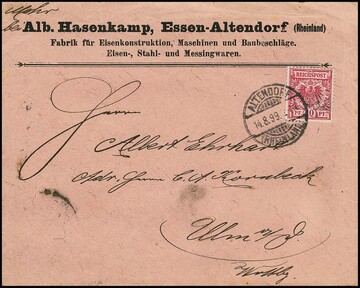 Alb. Hasenkamp, Essen-Altendorf (Rheinland)
Fabrik für Eisenkonstruktion, Maschinen und Baubeschläge.
Eisen-, Stahl- und Messingwaren.
REICHSPOST
ALTENDORF
14.8.99
(RHEINLAND)
Herrn
Albert Ehrhart
Adr. Herrn C. A. Kornbeck
Ulm a/D.
Wttbg